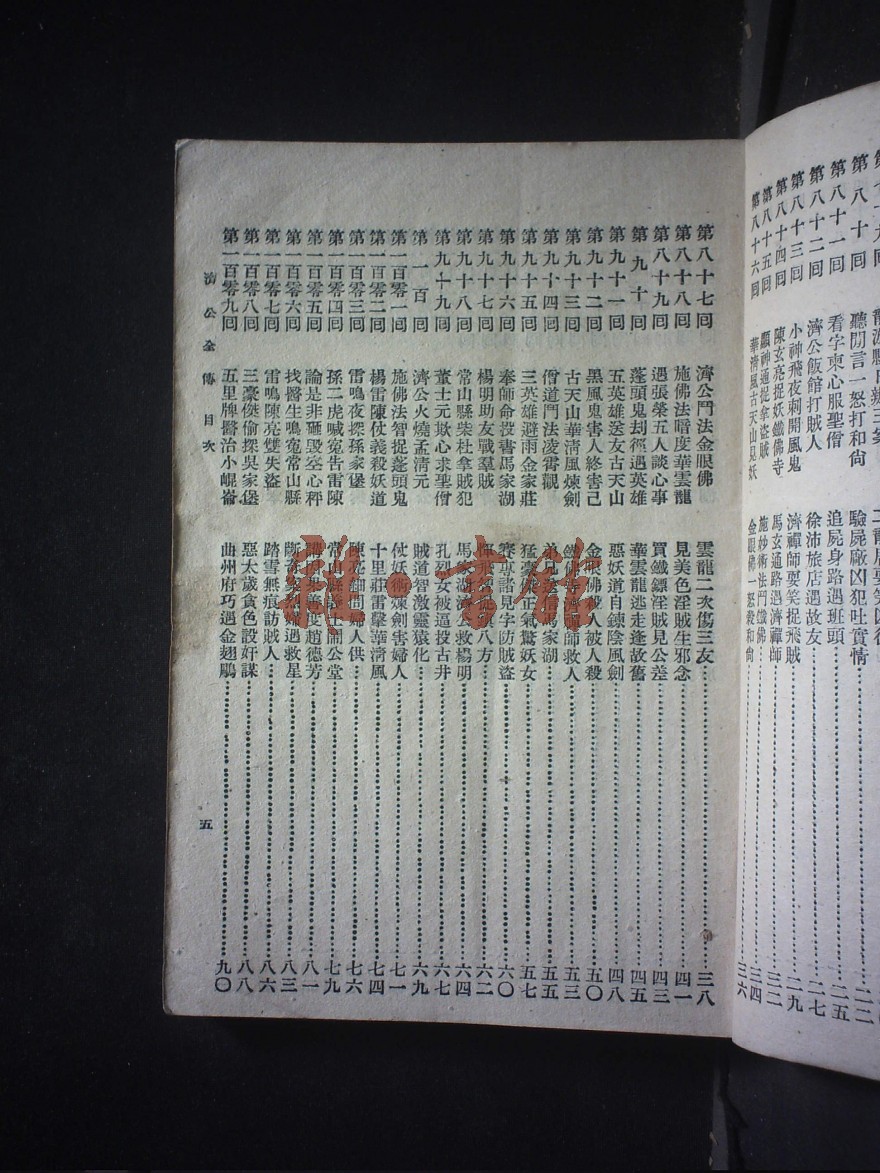 聽閒言一怒打和尙 驗屍廠凶犯吐實情
第八十一回 看字柬心服聖僧 追屍身路遇班頭 二五
第八十二回 濟公飯館打賊人 徐沛旅店遇故友 二七
第八十三回 小神飛夜刺開風鬼 濟禪師耍笑捉飛賊 二九
第八十四回 陳玄亮捉妖鐵佛寺 馬玄通路遇濟禪師 三二
第八十五回 顯神通捉拿盜賊 施妙術法鬥鐵佛 三四
第八十六回 華淸風古天山見妖 金眼佛一怒殺和尙 三六
第八十七回 濟公鬥法金眼佛 雲龍二次傷三友 三八
第八十八回 施佛法暗度華雲龍 見美色淫賊生邪念 四一
第八十九回 遇張榮五人談心事 買鐵鏢淫賊見公差 四三
第九十回 蓬頭鬼刦徑遇英雄 華雲龍逃走逢故舊 四五
第九十一回 五英雄送友古天山 惡妖道自鍊陰風劍 四八
第九十二回 黑風鬼害人終害己 金眼佛殺人被人殺 五〇
第九十三回 古天山華淸風煉劍 鐵佛寺濟禪師救人 五三
第九十四回 僧道鬥法凌霄觀 弟兄送信馬家湖 五五
第九十五回 三英雄避雨金家莊 猛豪傑正氣驚妖女 五七
第九十六回 奉師命投書馬家湖 賽專諸見字防賊盜 六〇
第九十七回 楊明助友戰羣賊 飛 八方 六二
第九十八回 常山縣柴杜拿賊犯 馬家湖濟公救楊明 六四
第九十九回 董士元欺心求聖僧 孔烈女被逼投古井 六七
第一百回 濟公火燒孟淸元 賊道智激靈猿化 六九
第一百零一回 施佛法智捉蓬頭鬼 仗妖術煉劍害婦人 七一
第一百零二回 楊雷陳仗義殺妖道 十里莊雷擊華淸風 七四
第一百零三回 雷鳴夜探孫家堡 陳亮細問婦人供 七六
第一百零四回 孫二虎喊寃告雷陳 常 公堂 七九
第一百零五回 論是非砸毀空心秤 善度趙德芳 八一
第一百零六回 找醫生鳴寃常山縣 斷奇案烈婦遇救星 八三
第一百零七回 雷鳴陳亮雙失盜 踏雪無痕訪賊人 八六
第一百零八回 三豪傑偷探吳家堡 惡太歲貪色設奸謀 八八
第一百零九回 五里牌醫治小崐崙 曲州府巧遇金翅鵰 九〇
濟公全傳 目次
五